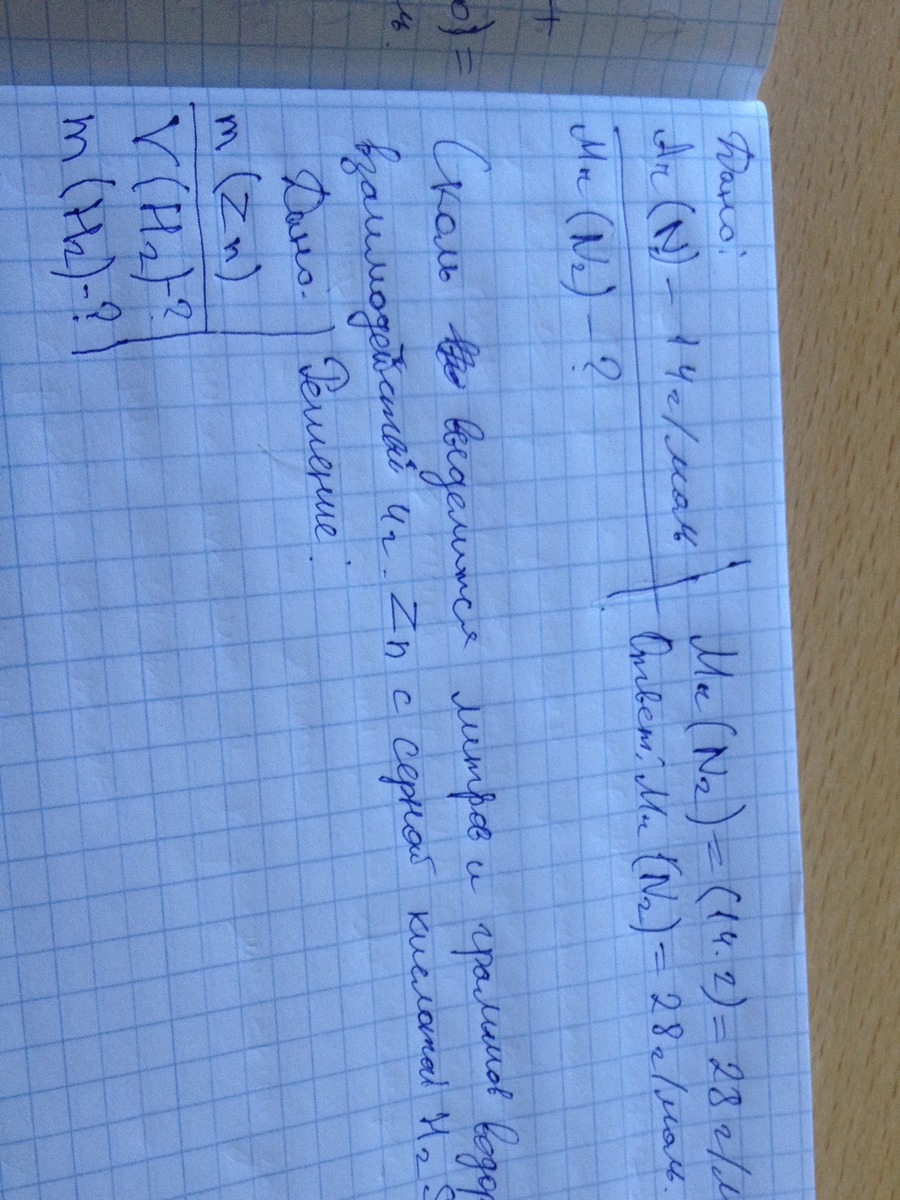 ) =
Дано:
Ar (N) – 14 г/моль
Mr (N2) – ?
Mr (N2) = (14 · 2) = 28 г/м
Ответ: Mr (N2) = 28 г/моль.
Сколь выделится литров и граммов водор
взаимодействий 4 г. Zn с серной кислотой H2S
Дано:
Решение.
m (Zn)
V (H2) – ?
m (H2) – ?